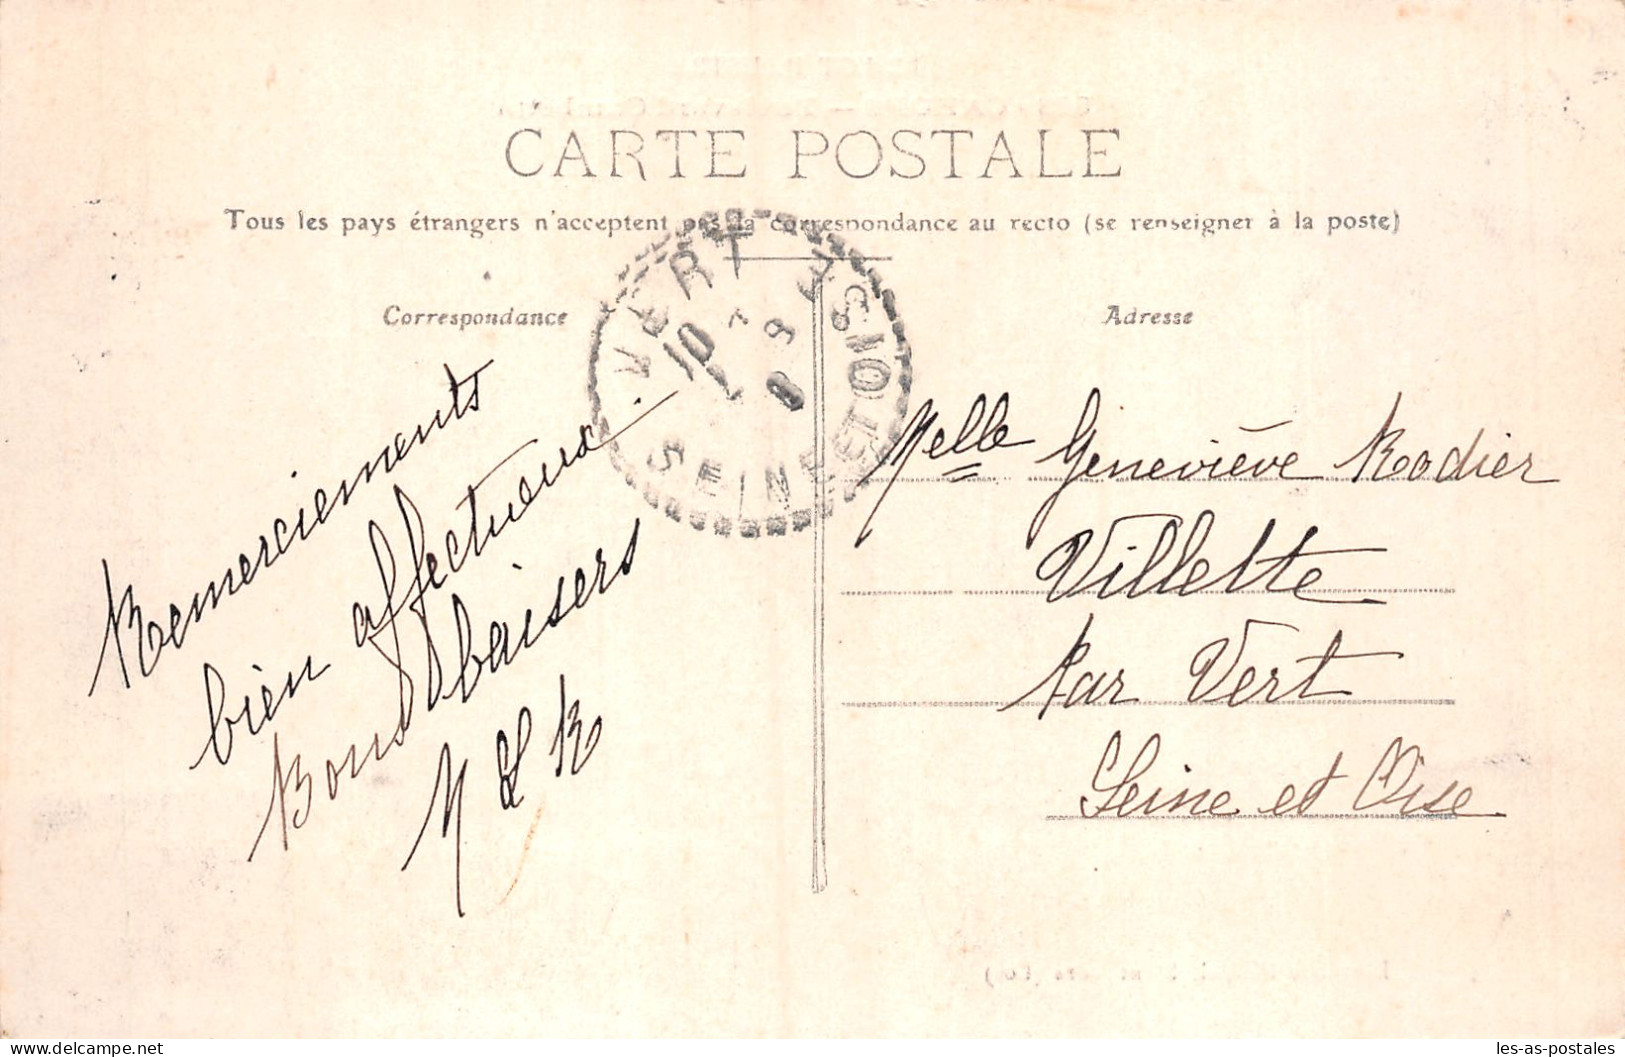 CARTE POSTALE
Tous les pays étrangers n'acceptent pas la correspondance au recto (se renseigner à la poste)
Correspondance
Adresse
VERT
SEINE
Remerciements
bien affectueux.
Bons baisers
M L R
Melle Geneviève Rodier
Villette
Par Vert
Seine et Oise
delcampe.net
les-as-postales